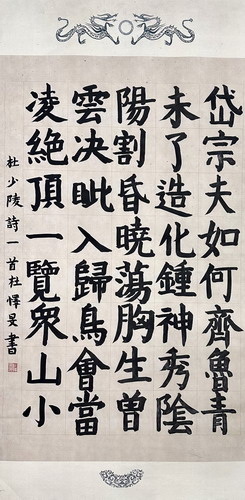 岱宗夫如何齊魯青
未了造化鍾神秀陰
陽割昏曉蕩胸生曾
雲决眦入歸鳥會當
凌絶頂一覽衆山小
杜少陵詩一首杜懌旻書